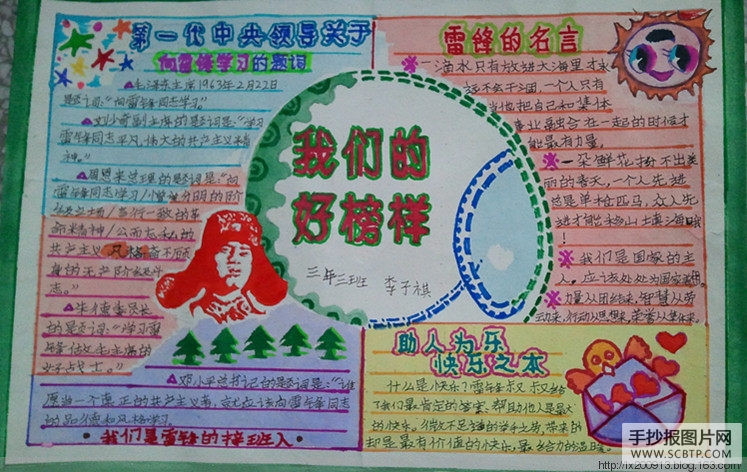 第一代中央领导关于
向雷锋学习的题词
毛泽东主席1963年2月22日
题词:"向雷锋同志学习。"
刘少奇副主席的题词是:"学习
雷锋同志平凡、伟大的共产主义精
神。"
周恩来总理的题词是:"向
雷锋同志学习/憎爱分明的阶
级立场/言行一致的革
命精神/公而忘私的
共产主义风格/奋不顾
身的无产阶级斗
志。"
朱德委员长
的题词是:"学习雷
锋做毛主席的
好战士。"
邓小平总书记的题词是:"谁
愿当一个真正的共产主义者,就应该向雷锋同志
的品德和风格学习。
我们是雷锋的接班人
我们的
好榜样
三年三班 李子祺
雷锋的名言
一滴水只有放进大海里才永
远不会干涸,一个人只有
当他把自己和集体
事业融合在一起的时候才
能最有力量。
一朵鲜花打扮不出美
丽的春天,一个人先进
总是单枪匹马,众人先
进才能移山填海
我们是国家的主
人,应该处处为国家着想。
力量从团结来,智慧从劳
动来,行动从思想来,荣誉从集体来。
助人为乐
快乐之本
什么是快乐?雷锋叔叔给
了我们最肯定的答案,帮助他人是最大
的快乐。
却是最有价值的快乐,最给力的温暖。
手抄报图片网
WWW.SCBTP.COM
http://lx2009913.blog.163.com/